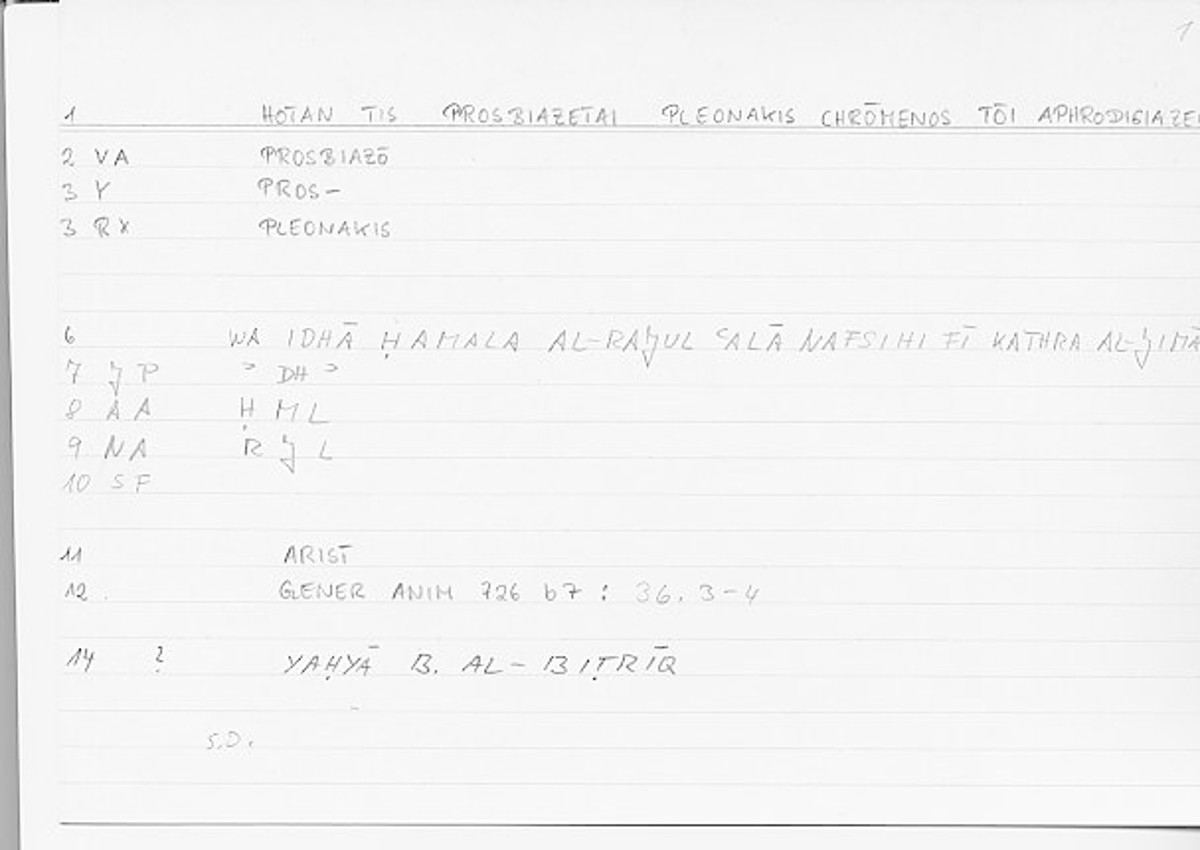 1
1 HOTAN TIS PROSBIAZETAI PLEONAKIS CHRŌMENOS TŌI APHRODISIAZE
2 VA PROSBIAZŌ
3 Y PROS-
3 RX PLEONAKIS
6 WA IDHĀ ḤAMALA AL-RAJUL ʿALĀ NAFSIHI FĪ KATHRA AL-JIMĀ
7 J P ʾ DH ʾ
8 A A Ḥ M L
9 NA R J L
10 S F
11 ARIST
12. GENER ANIM 726 b7 : 36. 3-4
14 ? YAḤYĀ B. AL-BIṬRĪQ
S.D.